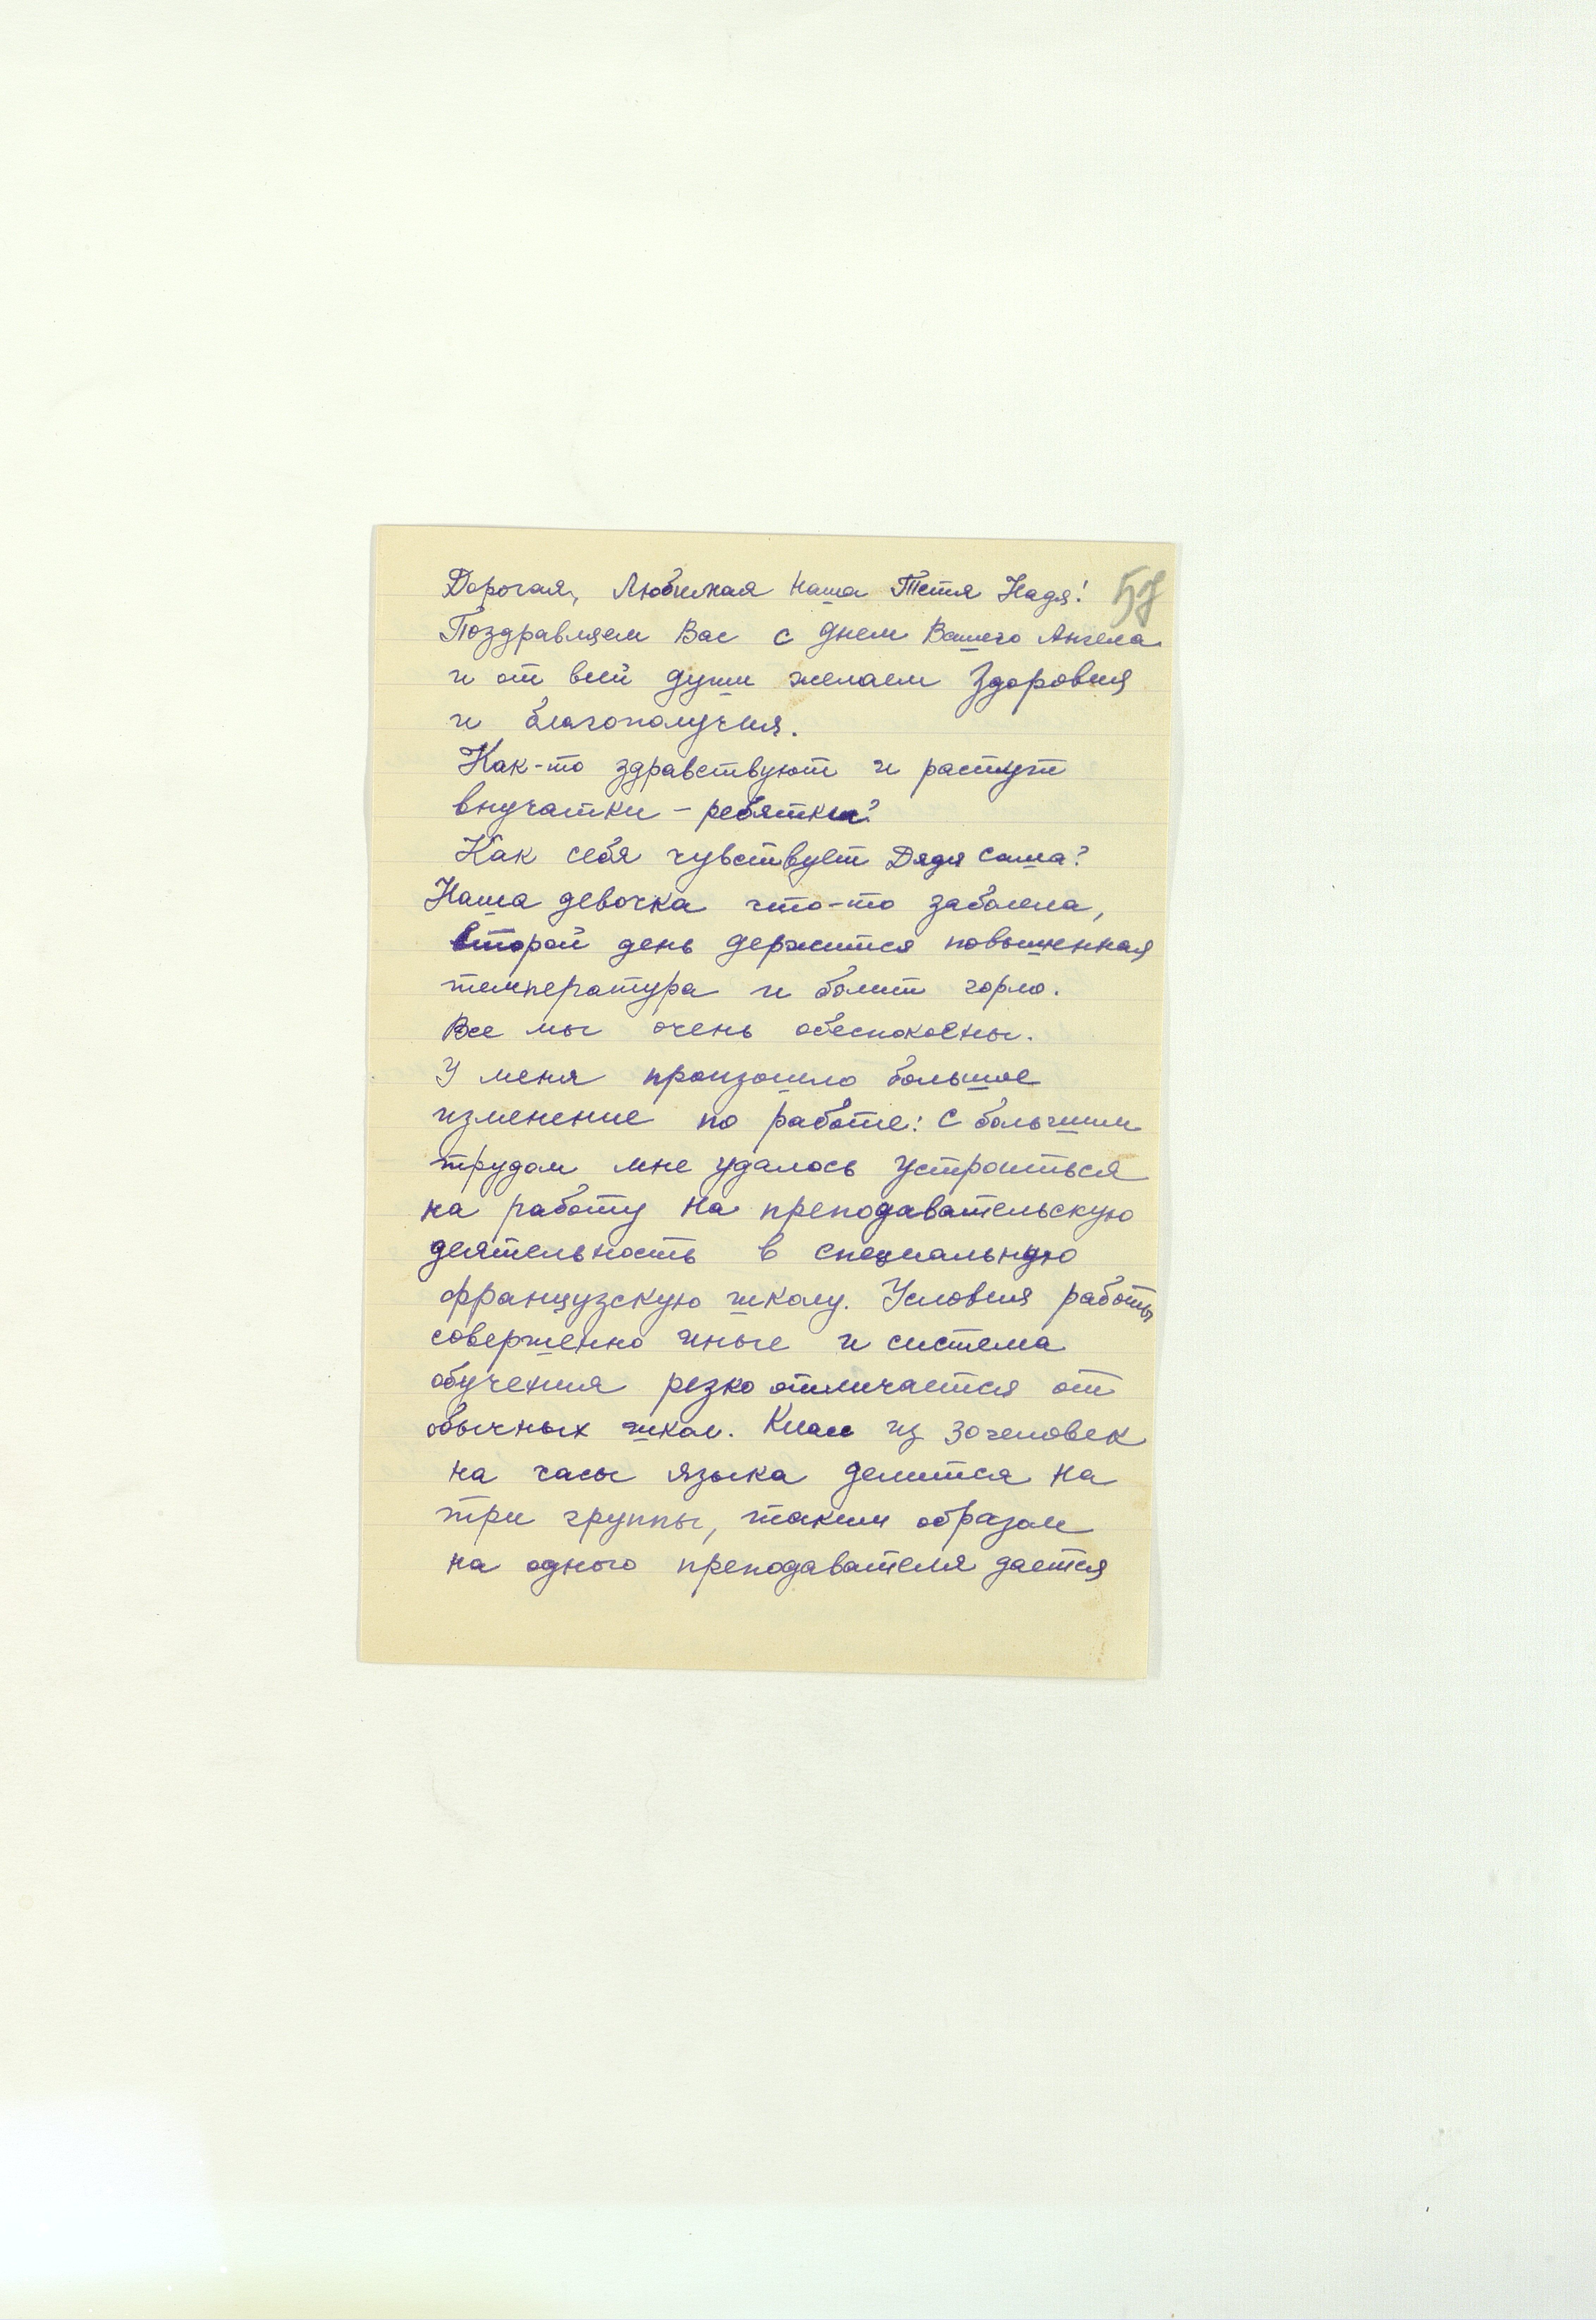 Дорогая, Любимая Наша Тетя Надя!
Поздравляем Вас с днем Вашего Ангела
и от всей души желаем Здоровия
и благополучия.
Как-то здравствуют и растут
внучатки - ребятки?
Как себя чувствует Дядя Саша?
Наша девочка что-то заболела,
второй день держится повышенная
температура и болит горло.
Все мы очень обеспокоены.
У меня произошло большое
изменение по работе: С большим
трудом мне удалось устроиться
на работу на преподавательскую
деятельность в специальную
французскую школу. Условия работы
совершенно иные и система
обучения резко отличается от
обычных школ. Класс из 30 человек
на часы языка делится на
три группы, таким образом
на одного преподавателя дается